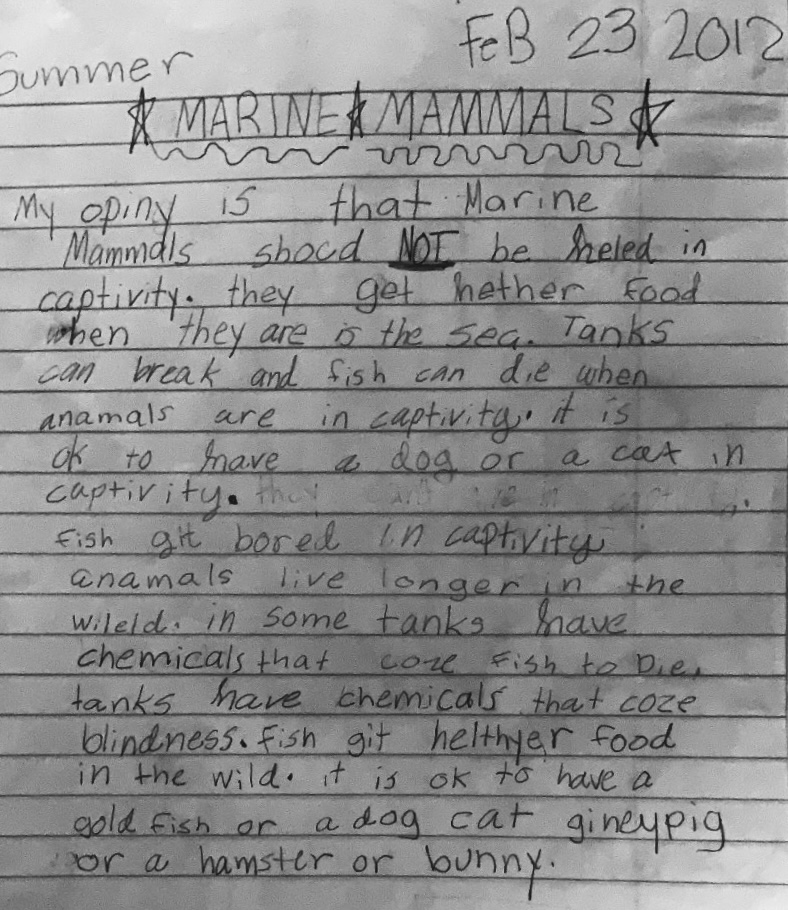 Summer
FeB 23 2012
MARINE MAMMALS
My opiny is that Marine
Mammals shocd NOT be heled in
captivity. they get hether food
when they are is the sea. Tanks
can break and fish can die when
anamals are in captivity. it is
ok to have a dog or a cat in
captivity.
fish git bored in captivity
anamals live longer in the
wileld. in some tanks have
chemicals that coze fish to Die,
tanks have chemicals that coze
blindness. fish git helthyer food
in the wild. it is ok to have a
gold fish or a dog cat gineypig
or a hamster or bunny.